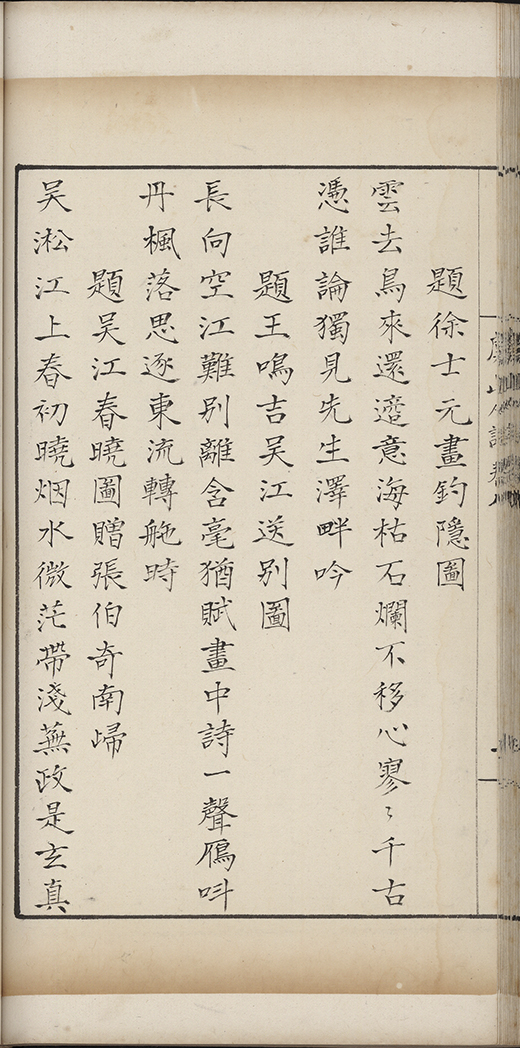 題徐士元畫釣隱圖
雲去鳥來還邅意海枯石爛不移心寥〻千古
憑誰論獨見先生澤畔吟
題王鳴吉吴江送别圖
長向空江難别離含毫猶賦畫中詩一聲鴈呌
丹楓落思逐東流轉舵時
題吴江春曉圖贈張伯奇南歸
吴淞江上春初曉烟水微茫帶淺蕪政是玄真